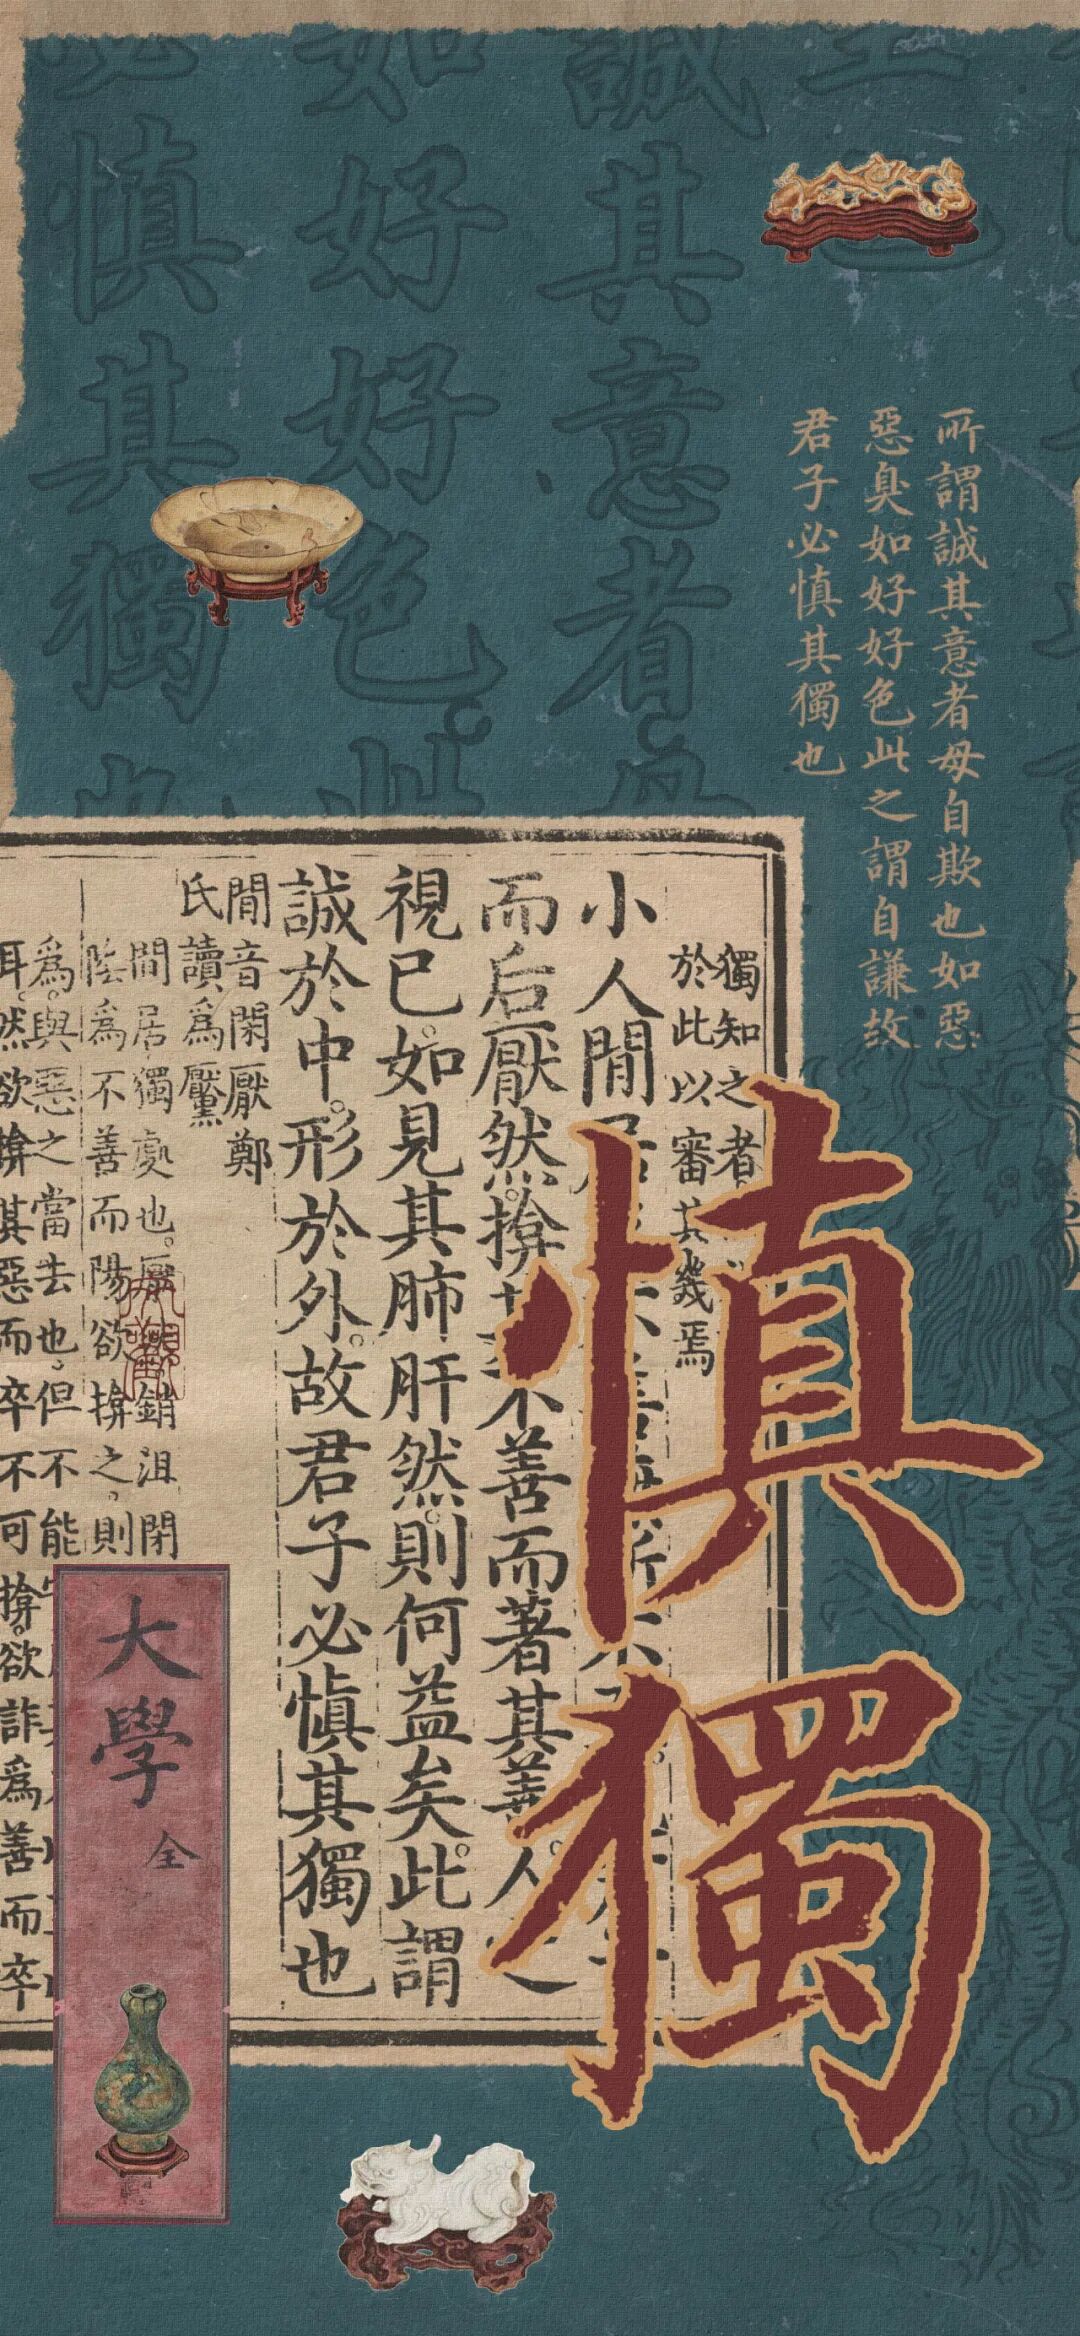 誠其意者毋
如好好色。此
必慎其獨也
所謂誠其意者毋自欺也如惡
惡臭如好好色此之謂自謙故
君子必慎其獨也
慎獨
獨知之者
於此以審其幾焉
小人閒居
而后厭然。揜其不善而著其善。人之
視己。如見其肺肝然。則何益矣。此謂
誠於中。形於外。故君子必慎其獨也
閒音閑厭鄭
氏讀為黶
閒居獨處也。厭 銷沮閉
陰為不善而陽欲揜之。則
為。與惡之當去也。但不能
耳。然欲揜其惡而卒不可揜。欲詐為善而卒
大學
全